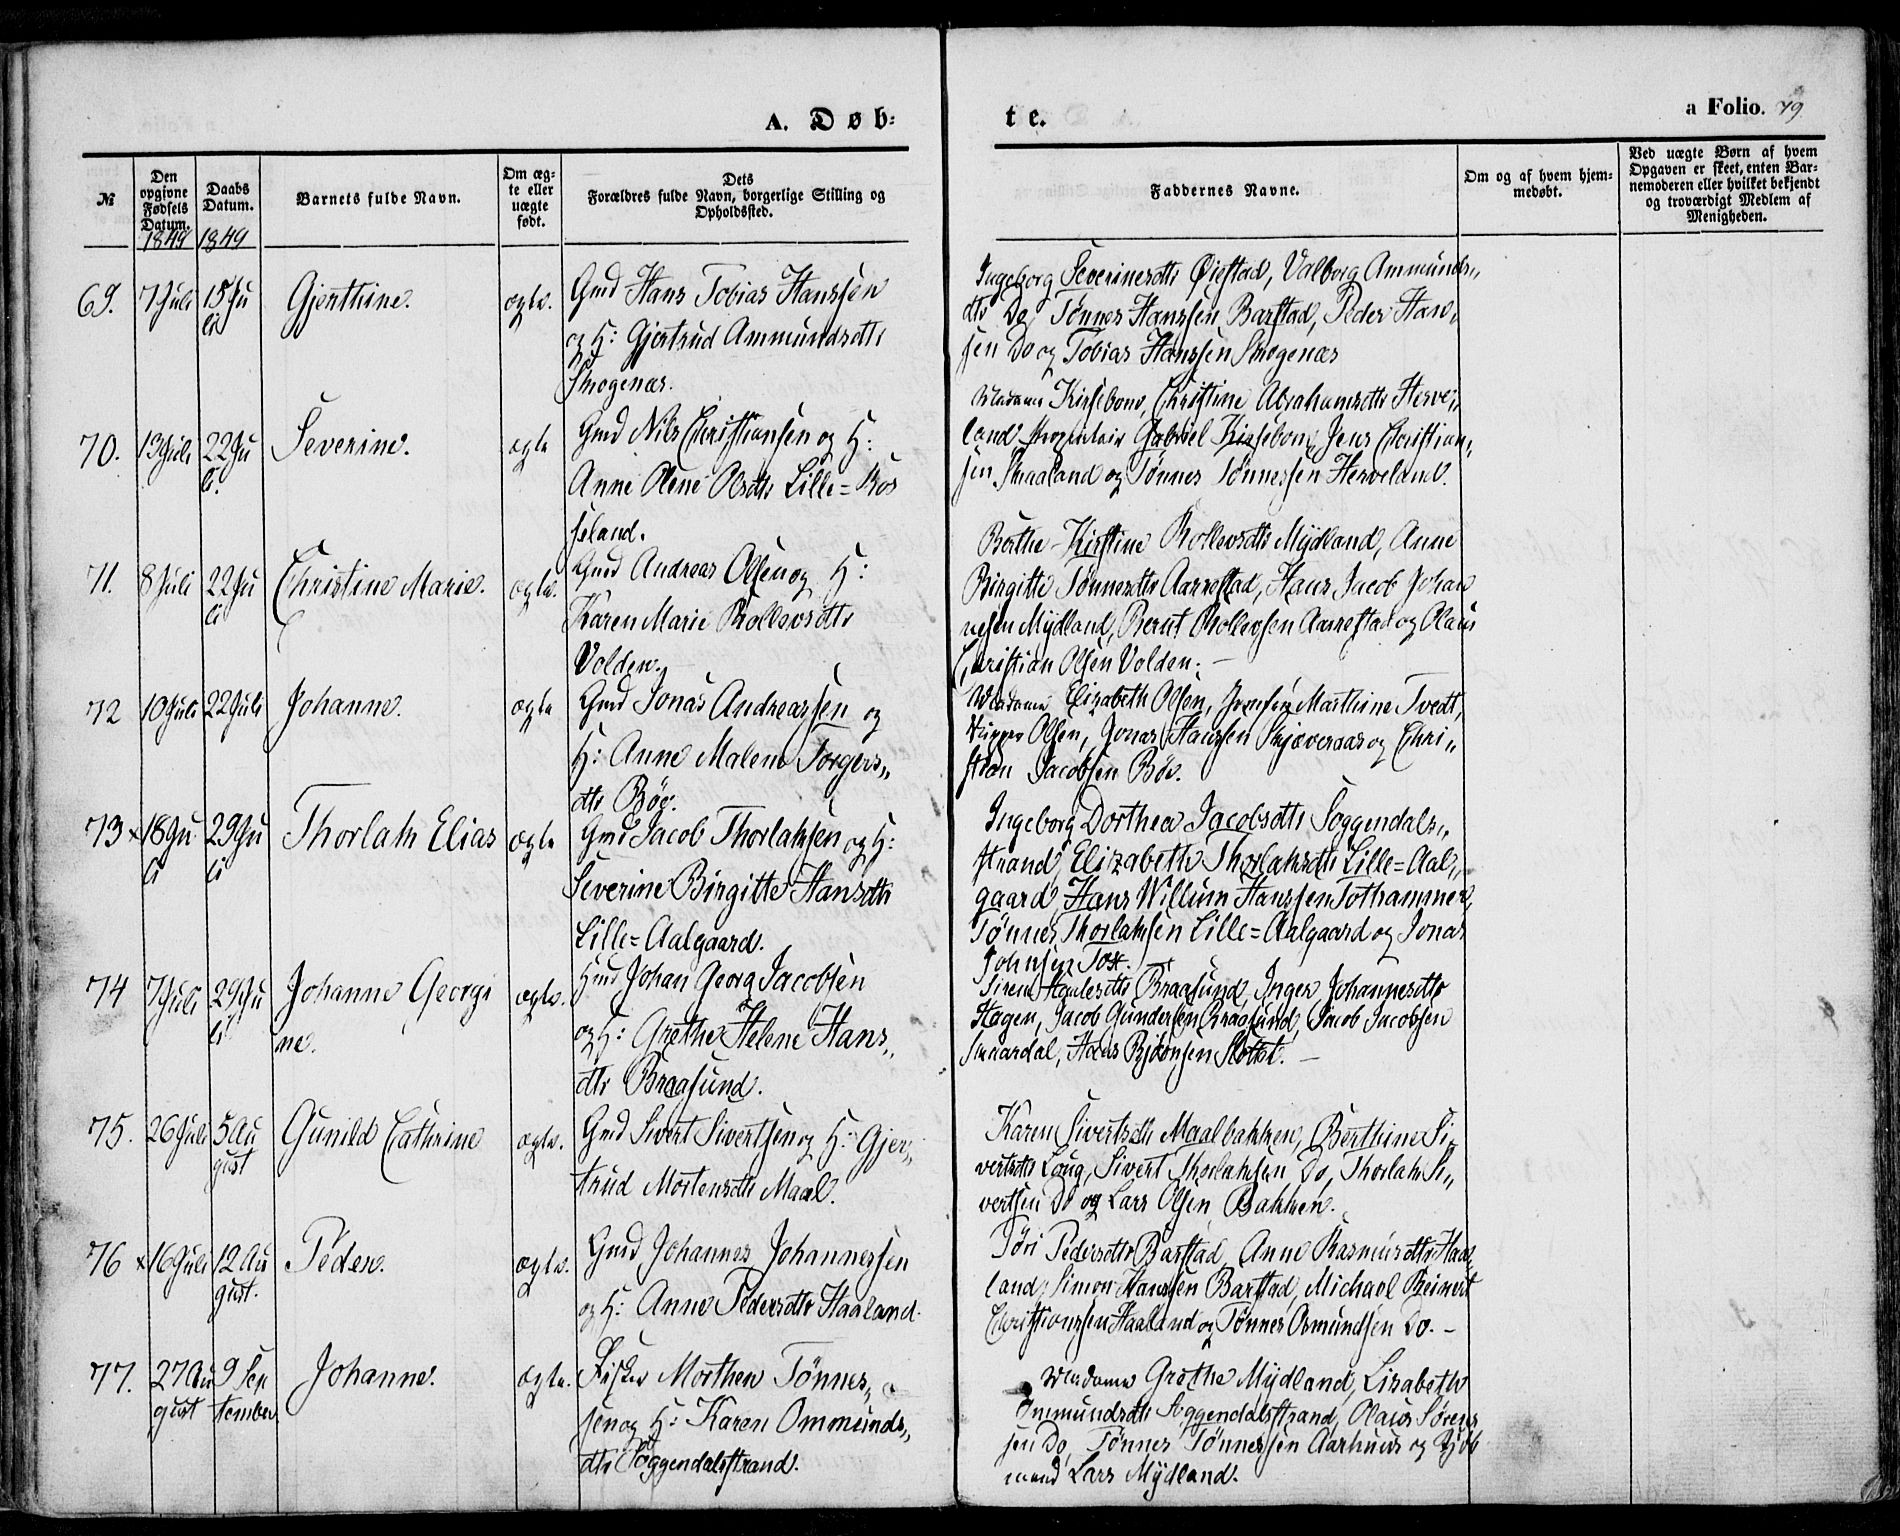 A. Døb=
te.
a Folio. 79
№
Den opgivne Fødsels Datum.
1849
Daabs Datum.
1849
Barnets fulde Navn.
Om ægte eller uægte født.
Dets Forældres fulde Navn, borgerlige Stilling og Opholdssted.
Faddernes Navne.
Om og af hvem hjemmedøbt.
Ved uægte Børn af hvem Opgaven er skeet, enten Barnemoderen eller hvilket bekjendt og troværdigt Medlem af Menigheden.
69. 7 Juli 15 Ju Gjerthine. ægte. Gmd Hans Tobias Hanssen
li og H: Gjertrud Ammundsdtr
Skogenæs.
Ingeborg Severinesdtr Øiestad, Valborg Ammunds„
dtr Do, Tønnes Hanssen Barstad, Peder Han„
sen Do og Tobias Hanssen Skogenæs
70. 13 Juli 22 Ju Severine. ægte Gmd Nils Christiansen og H:
li. Anne Olene Olsdtr Lille=Ros
seland.
Madame Kirsebom, Christine Abrahamsdtr Herve„
land, Gabriel Kirsebom, Jens Christian„
sen Skaaland og Tønnes Tønnessen Herveland.
71. 8 Juli 22 Ju Christine Marie. ægte. Gmd Andreas Olsen og H:
li Karen Marie Rollevsdtr
Volden.
Berthe Kirstine Rollevsdtr Mydland, Anne
Birgitte Tønnesdtr Aarrestad, Hans Jacob Johan
nesen Mydland, Bernt Rollevsen Aarrestad og Olaus
Christian Olsen Volden. —
72 10 Juli 22 Juli Johanne. ægte Gmd Jonas Andreassen og
H: Anne Malene Torgers„
dtr Bøe.
Madame Elizabeth Olsen, Jomfru Marthine Tvedt,
Olsen, Jonas Hanssen Skjæveraas og Chri„
stian Jacobsen Bøe.
73 × 18 Ju 29 Ju Thorlak Elias ægte Gmd Jacob Thorlaksen og H:
li li Severine Birgitte Hansdtr
Lille=Aalgaard.
Ingeborg Dorthea Jacobsdtr Soggendals„
strand, Elizabeth Thorlaksdtr Lille=Aal„
gaard, Hans Willum Hanssen Tothammer,
Tønnes Thorlaksen Lille=Aalgaard og Jonas
Johnsen Tox.
74 7 Juli 29 Ju Johanne Georgi ægte. Hmd Johan Georg Jacobsen
li ne. og H: Grethe Helene Hans„
dtr Braasund.
Siren Braasund, Inger Johannesdtr
Hagen, Jacob Gundersen Braasund, Jacob Jacobsen
Skaardal, Slottet. —
75. 26 Juli 5 Au Gunild Cathrine ægte. Gmd Sivert Sivertsen og H: Gjer„
gust trud Mortensdtr Maal.
Karen Sivertsdtr Maalbakken, Berthine Si„
vertsdtr Loug, Sivert Thorlaksen Do, Thorlak Si„
vertsen Do og Lars Olsen Bakken.
76 × 16 Juli 12 Au Peder. ægte. Gmd Johannes Johannessen
gust. og H: Anne Pedersdtr Haaland.
Tøri Pedersdtr Barstad, Anne Rasmusdtr Haa„
land, Simon Hanssen Barstad, Michael Reinert
Christianssen Haaland og Tønnes Osmundsen Do. —
77. 27 Au 9 Sep Johanne. ægte. Fisker Morthen Tønnes„
gust tember sen og H: Karen Ommunds„
dtr Soggendalsstrand.
Madame Grethe Mydland, Lisabeth
Ommundsdtr Soggendalsstrand, Olaus Sørens
sen Do, Tønnes Tønnessen Aarhuus og Kjøb
mand Lars Mydland.